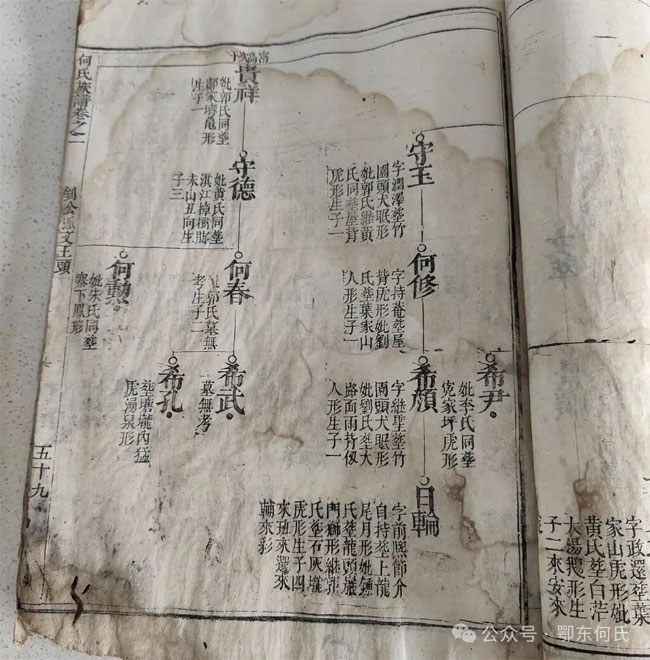 何氏族譜卷之二
五十九
貴祥
妣郭氏同塟
生子一
守德
妣黃氏同塟
未山丑向生
子三
守玉
字潤澤塟竹
園頭犬眠形
妣郭氏繼黃
氏同塟屋背
虎形生子一
何修
字持菴塟屋
背虎形妣劉
氏塟葉家山
人形生子一
何春
郭氏墓無
考生子二
何勲
妣朱氏同塟
寨下鳳形
希尹
妣李氏同塟
克家坪虎形
希顔
字継聖塟竹
園頭犬眠形
妣劉氏塟大
路面兩打伋
人形生子一
希武
墓無考
希孔
塟塘龍內猛
虎湯泉形
日輪
字前熙節介
自持塟上龍
尾月形妣鍾
氏塟龍頭巖
門獅形継郭
氏塟石灰壠
虎形生子四
來珽來還來
輔來彩
字政還塟葉
家山虎形妣
黃氏塟白茫
大湯鵝形生
子二來安來
公众号 · 鄂东何氏